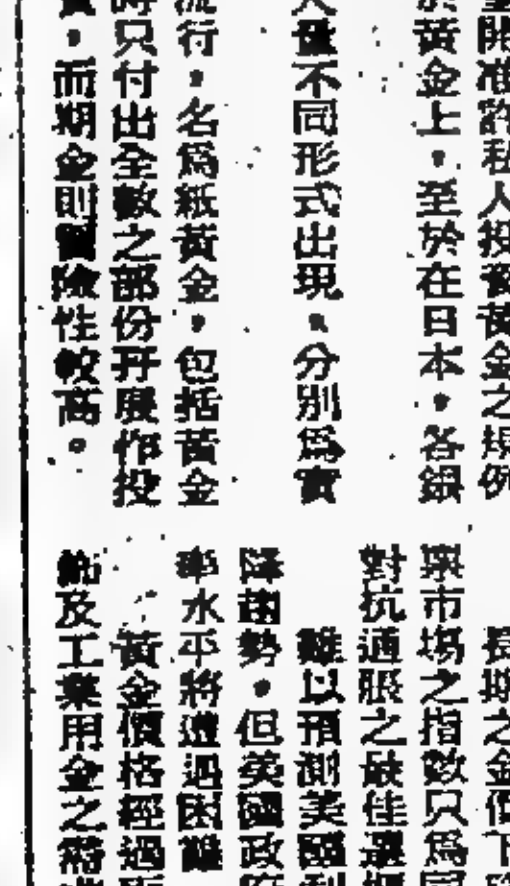 開准許私人投資黃金之規例
黃金上，至於在日本，各銀
大量不同形式出現，分別爲實
流行，名爲紙黃金，包括黃金
時只付出全數之部份孖展作投
，而期金則風險性較高。
長期之金價下
票市場之指數只爲同
對抗通脹之最佳選擇
難以預測美國利
降趨勢，但美國政府
率水平將遭遇困難
黃金價格經過
飾及工業用金之需